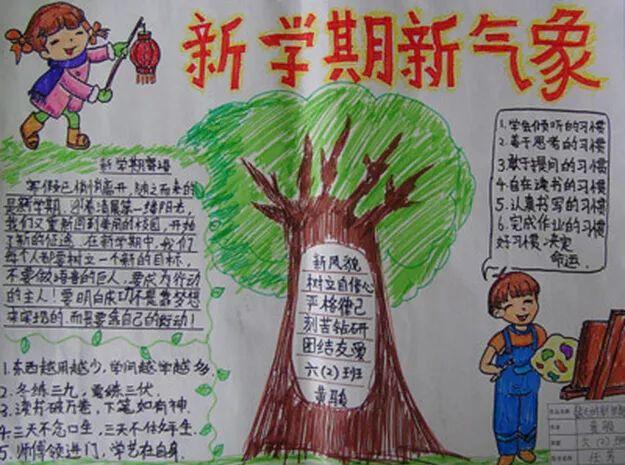 新学期新气象
新学期寄语
寒假已悄悄离开,随之而来的
是新学期,迎着清晨第一缕阳光,
我们又重新回到美丽的校园,开始
了新的征途。在新学期中,我们
每个人都要树立一个新的目标,
不要做语言的巨人,要成为行动
的主人!要明白成功不是靠梦想
来实现的,而是要靠自己的行动!
1.东西越用越少,学问越学越多.
2.冬练三九,夏练三伏.
3.读书破万卷,下笔如有神.
4.三天不念口生,三天不做手生.
5.师傅领进门,学艺在自身.
新风貌
树立自信心
严格律己
刻苦钻研
团结友爱
六(2)班
黄骏
1.学会倾听的习惯
2.善于思考的习惯
3.敢于提问的习惯
4.自在读书的习惯
5.认真书写的习惯
6.完成作业的习惯
好习惯,决定
命运.
作品名称
黄骏
六(2)班